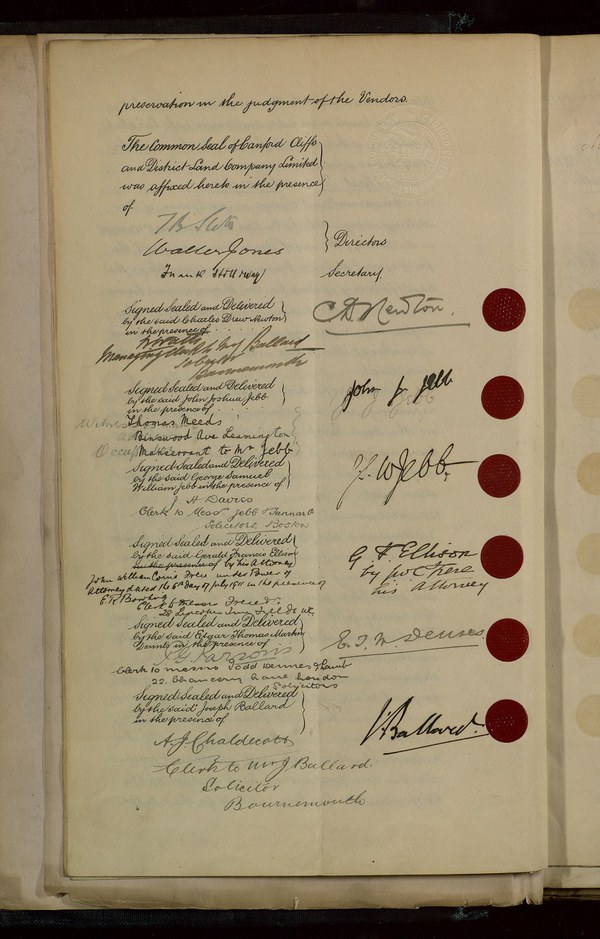 preservation in the judgment of the Vendors.
The Common Seal of Canford Cliffs
and District Land Company Limited
was affixed hereto in the presence
of
Walter Jones
Directors
Frank
Secretary.
Signed Sealed and Delivered
by the said Charles Drew Newton
in the presence of
C D Newton.
Managing Clerk to Mr J Ballard
Solicitor
Bournemouth
Signed Sealed and Delivered
by the said John Joshua Jebb
in the presence of
John J Jebb
Thomas Meeds
Binswood Ave Leamington
Manservant to Mr Jebb
Signed Sealed and Delivered
by the said George Samuel
William Jebb in the presence of
G. S. W Jebb
J H Davies
Clerk to Messrs Jebb &
Solicitors, Boston
Signed Sealed and Delivered
by the said Gerald Francis Ellison
in the presence of by his Attorney
John William Corrie Frere under Power of
Attorney dated the 6th day of July 1911 in the presence of
G F Ellison
by JWC Frere
his Attorney
E R Bowling
Clerk to Messrs Frere &
28 Lincolns Inn Fields WC
Signed Sealed and Delivered
by the said Edgar Thomas Martin
Dennis in the presence of
E. T. M. Dennes
Parsons
Clerk to Messrs Todd Dennes & Lamb
22. Chancery Lane London
Solicitors
Signed Sealed and Delivered
by the said Joseph Ballard
in the presence of
J Ballard.
A. J. Chaldecott
Clerk to Mr J Ballard.
Solicitor
Bournemouth